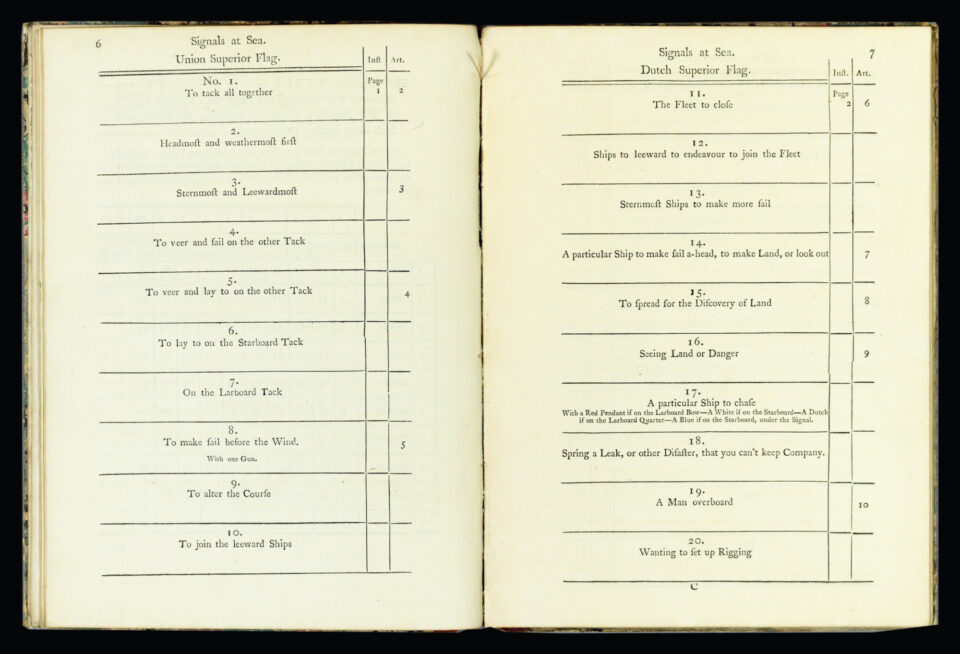 6
Signals at Sea.
Union Superior Flag.
Inſt
Art.
No. 1.
Page
To tack all together
1
2
2.
Headmoſt and weathermoſt firſt
3.
Sternmoſt and Leewardmoſt
3
4.
To veer and ſail on the other Tack
5.
To veer and lay to on the other Tack
4
6.
To lay to on the Starboard Tack
7.
On the Larboard Tack
8.
To make ſail before the Wind.
5
With one Gun.
9.
To alter the Courſe
10.
To join the leeward Ships
Signals at Sea.
7
Dutch Superior Flag.
Inſt.
Art.
11.
Page
The Fleet to cloſe
2
6
12.
Ships to leeward to endeavour to join the Fleet
13.
Sternmoſt Ships to make more ſail
14.
A particular Ship to make ſail a-head, to make Land, or look out
7
15.
To ſpread for the Diſcovery of Land
8
16.
Seeing Land or Danger
9
17.
A particular Ship to chaſe
With a Red Pendant if on the Larboard Bow—A White if on the Starboard—A Dutch
if on the Larboard Quarter—A Blue if on the Starboard, under the Signal.
18.
Spring a Leak, or other Diſaſter, that you can't keep Company.
19.
A Man overboard
10
20.
Wanting to ſet up Rigging
C